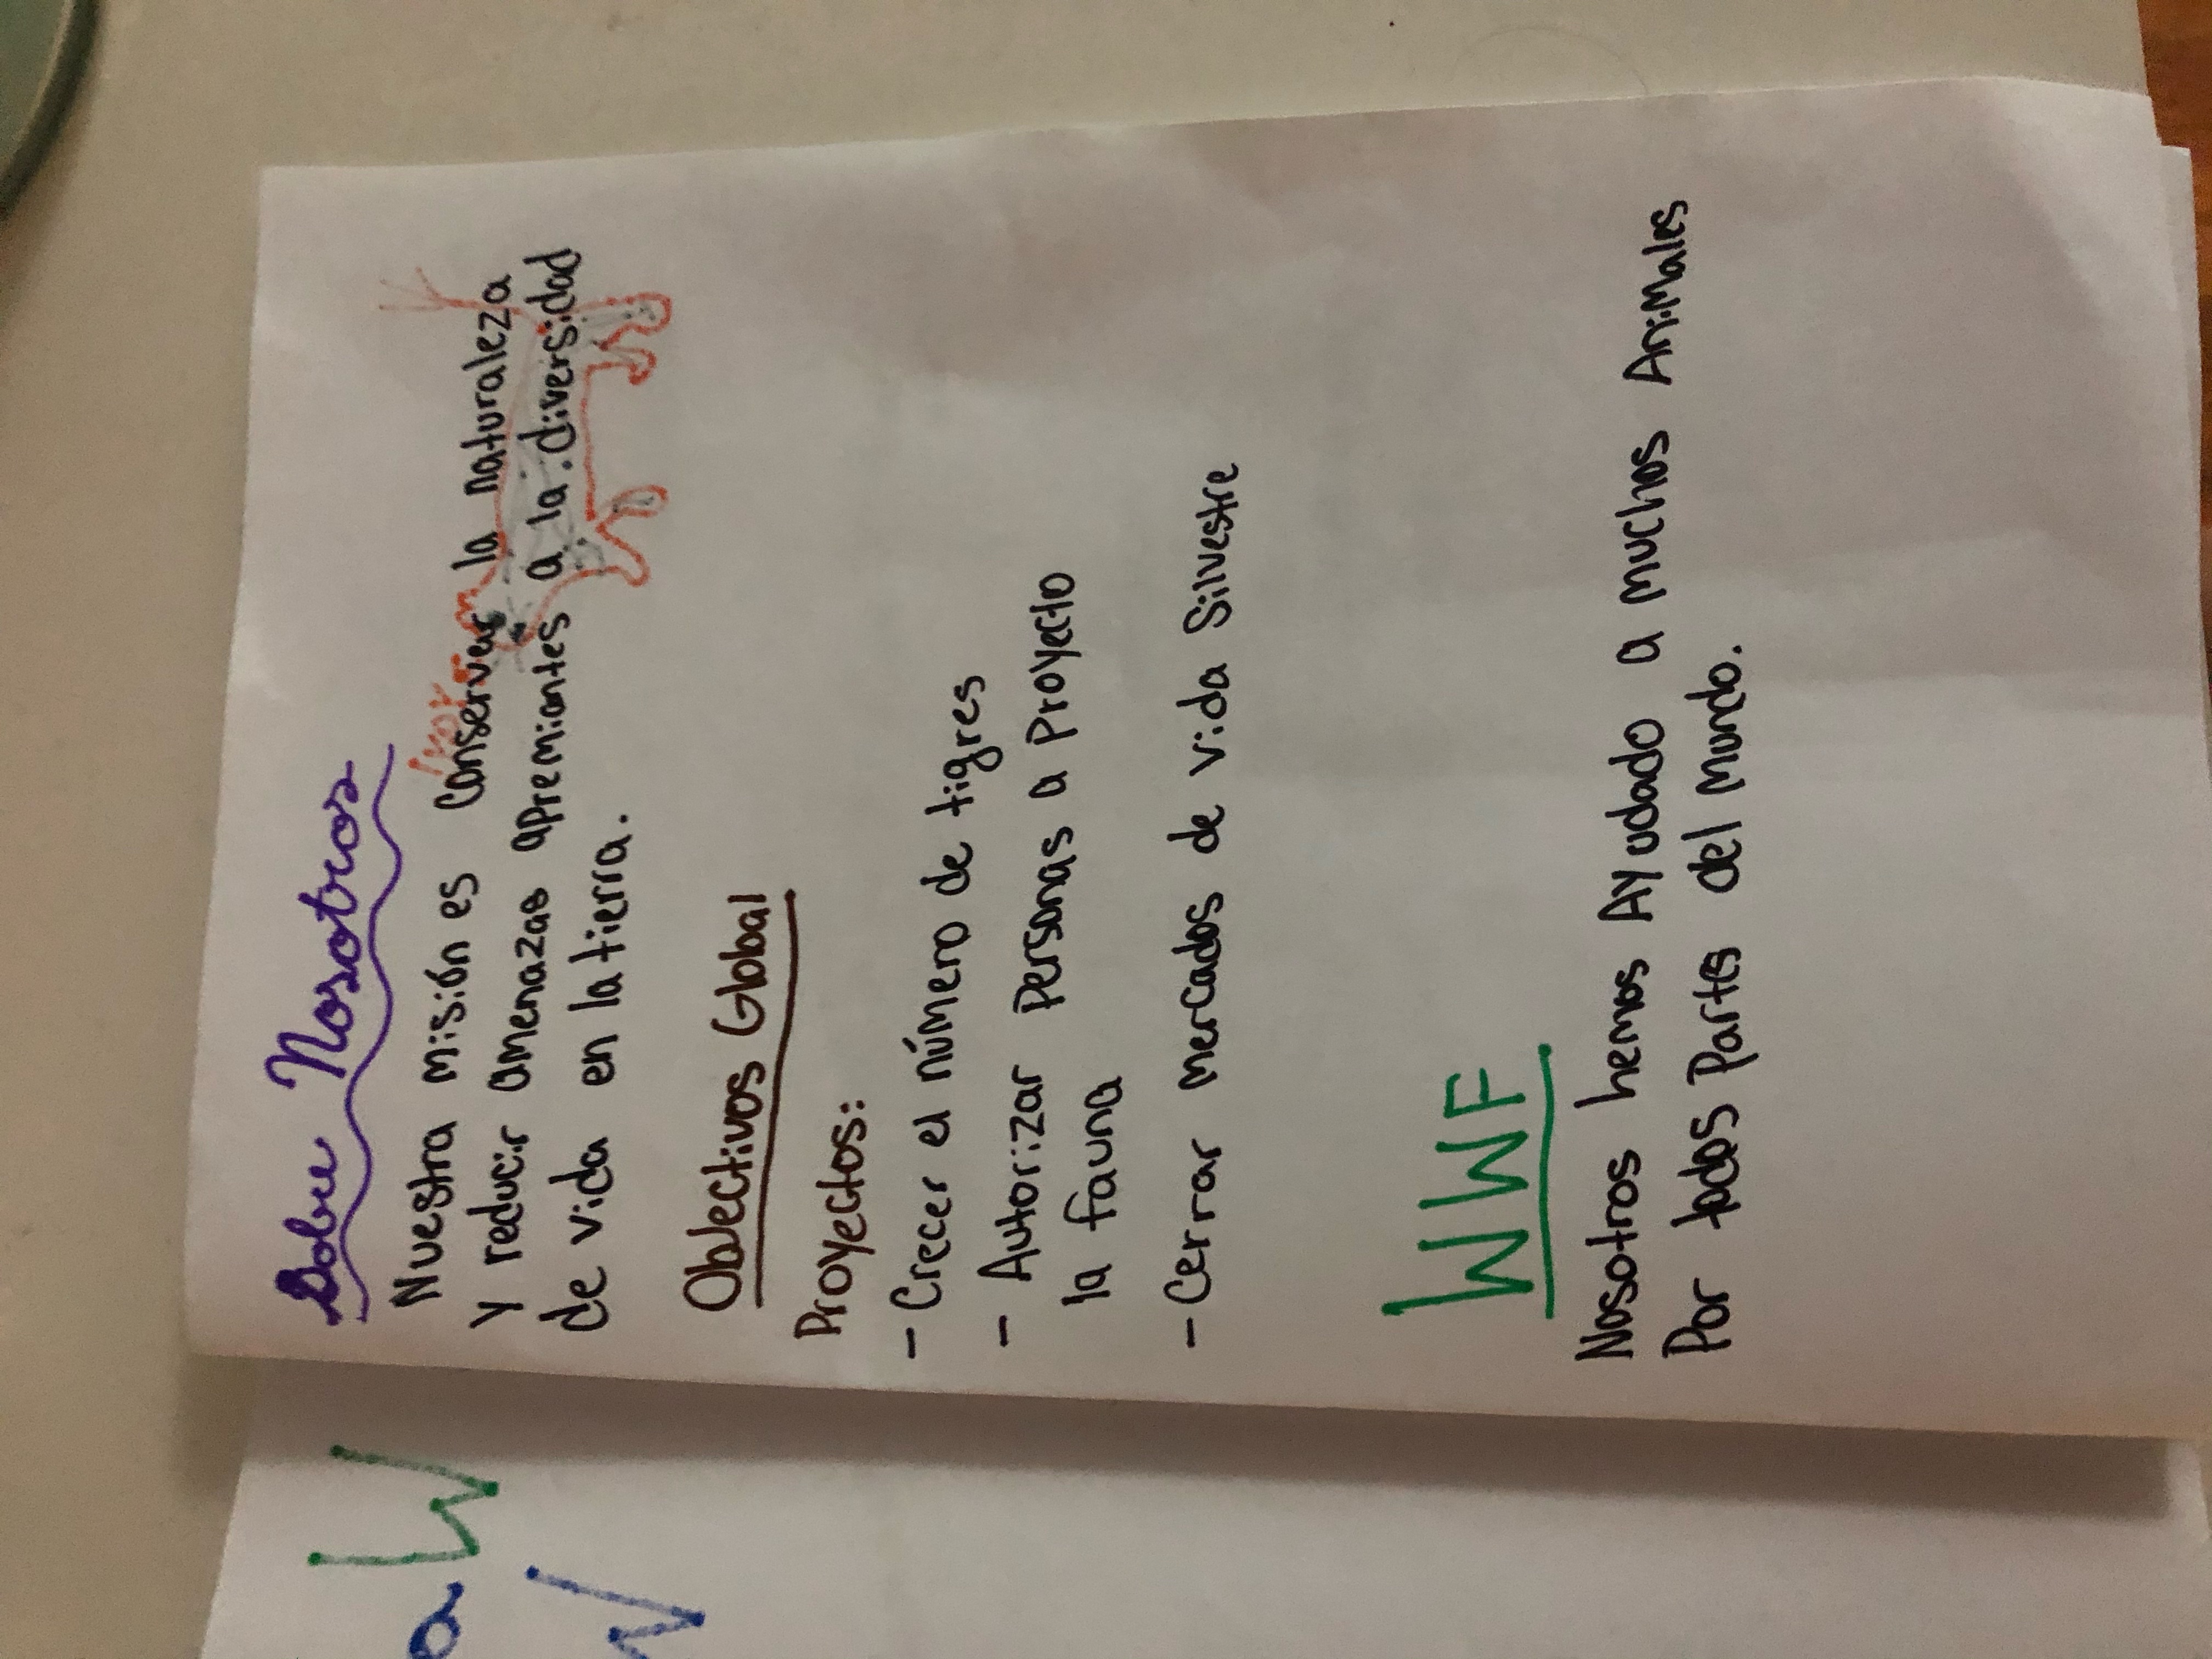 Sobre Nosotros
Nuestra misión es conservar la naturaleza
y reducir amenazas apremiantes a la diversidad
de vida en la tierra.
Objectivos Global
Proyectos:
- Crecer el número de tigres
- Autorizar personas a Proyecto
la fauna
- Cerrar mercados de vida Silvestre
WWF
Nosotros hemos Ayudado a muchos Animales
Por todas Partes del Mundo.